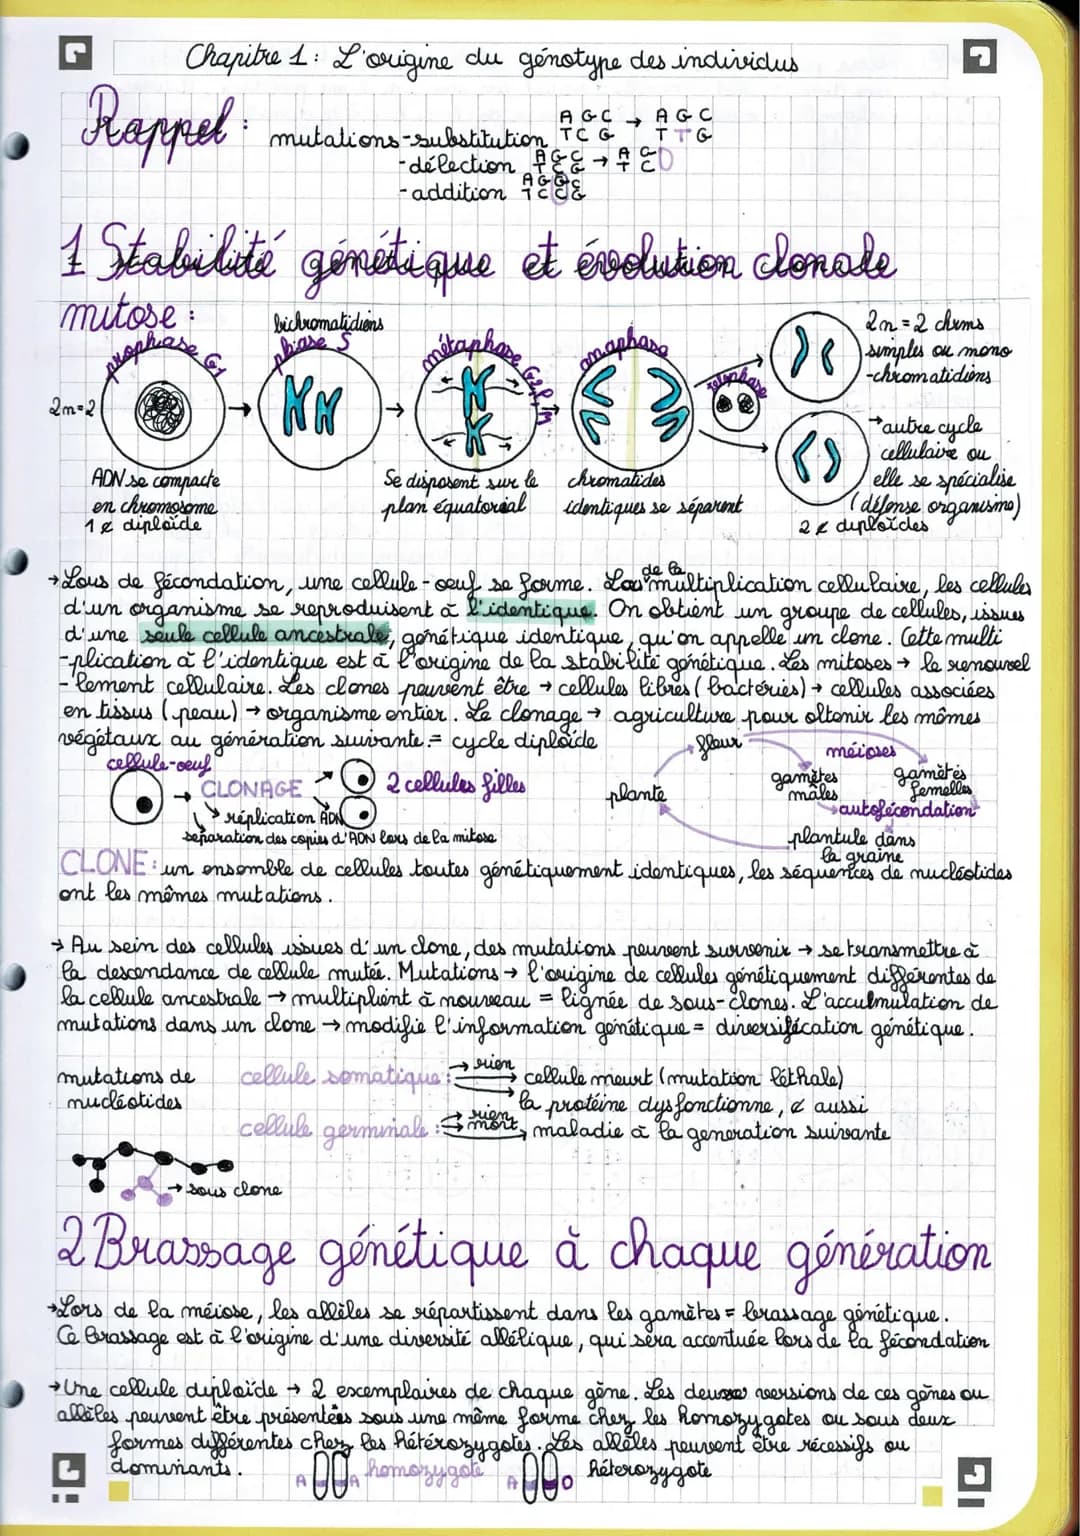 Chapitre 1 : L'origine du génotype des individus
Rappel :
mutations - substitution
A G C → A G C
T C G T T G
- délection A G C → A G
T C G T C
- addition A G G C
T C C G
1 Stabilité génétique et évolution clonale
mitose :
prophase G1
2n=2
ADN se compacte
en chromosome
1 ¢ diploïde
bichromatidiens
phase S
métaphase G2, P, M
Se disposent sur le
plan équatorial
anaphase
chromatides
identiques se séparent
télophase
2n = 2 chrms
simples ou mono
-chromatidiens
→ autre cycle
cellulaire ou
elle se spécialise
(défense organisme)
2 ¢ diploïdes
→ Lors de fécondation, une cellule-oeuf se forme. Lors de la multiplication cellulaire, les cellules
d'un organisme se reproduisent à l'identique. On obtient un groupe de cellules, issues
d'une seule cellule ancestrale, génétique identique, qu'on appelle un clone. Cette multi
-plication à l'identique est à l'origine de la stabilité génétique. Les mitoses → le renouvel
-lement cellulaire. Les clones peuvent être → cellules libres (bactéries) → cellules associées
en tissus (peau) → organisme entier. Le clonage → agriculture pour obtenir les mêmes
végétaux au génération suivante = cycle diploïde
cellule-oeuf
→ CLONAGE
↳ réplication ADN
↳ séparation des copies d'ADN lors de la mitose
2 cellules filles
plante
fleur
méioses
gamètes
mâles
gamètes
femelles
autofécondation
plantule dans
la graine
CLONE : un ensemble de cellules toutes génétiquement identiques, les séquences de nucléotides
ont les mêmes mutations.
→ Au sein des cellules issues d'un clone, des mutations peuvent survenir → se transmettre à
la descendance de cellule mutée. Mutations → l'origine de cellules génétiquement différentes de
la cellule ancestrale → multiplient à nouveau = lignée de sous-clones. L'acculmulation de
mutations dans un clone → modifie l'information génétique = diversification génétique.
mutations de
nucléotides
cellule somatique : → rien
→ cellule meurt (mutation léthale)
→ la protéine dysfonctionne, ¢ aussi
cellule germinale : → rien
→ mort, maladie à la generation suivante
→ sous clone
2 Brassage génétique à chaque génération
→ Lors de la méiose, les allèles se répartissent dans les gamètes = brassage génétique.
Ce brassage est à l'origine d'une diversité allélique, qui sera accentuée lors de la fécondation
→ Une cellule diploïde → 2 exemplaires de chaque gène. Les deux versions de ces gènes ou
allèles peuvent être présentées sous une même forme chez les homozygotes ou sous deux
formes différentes chez les hétérozygotes. Les allèles peuvent être récessifs ou
dominants.
A A homozygote
A O héterozygote